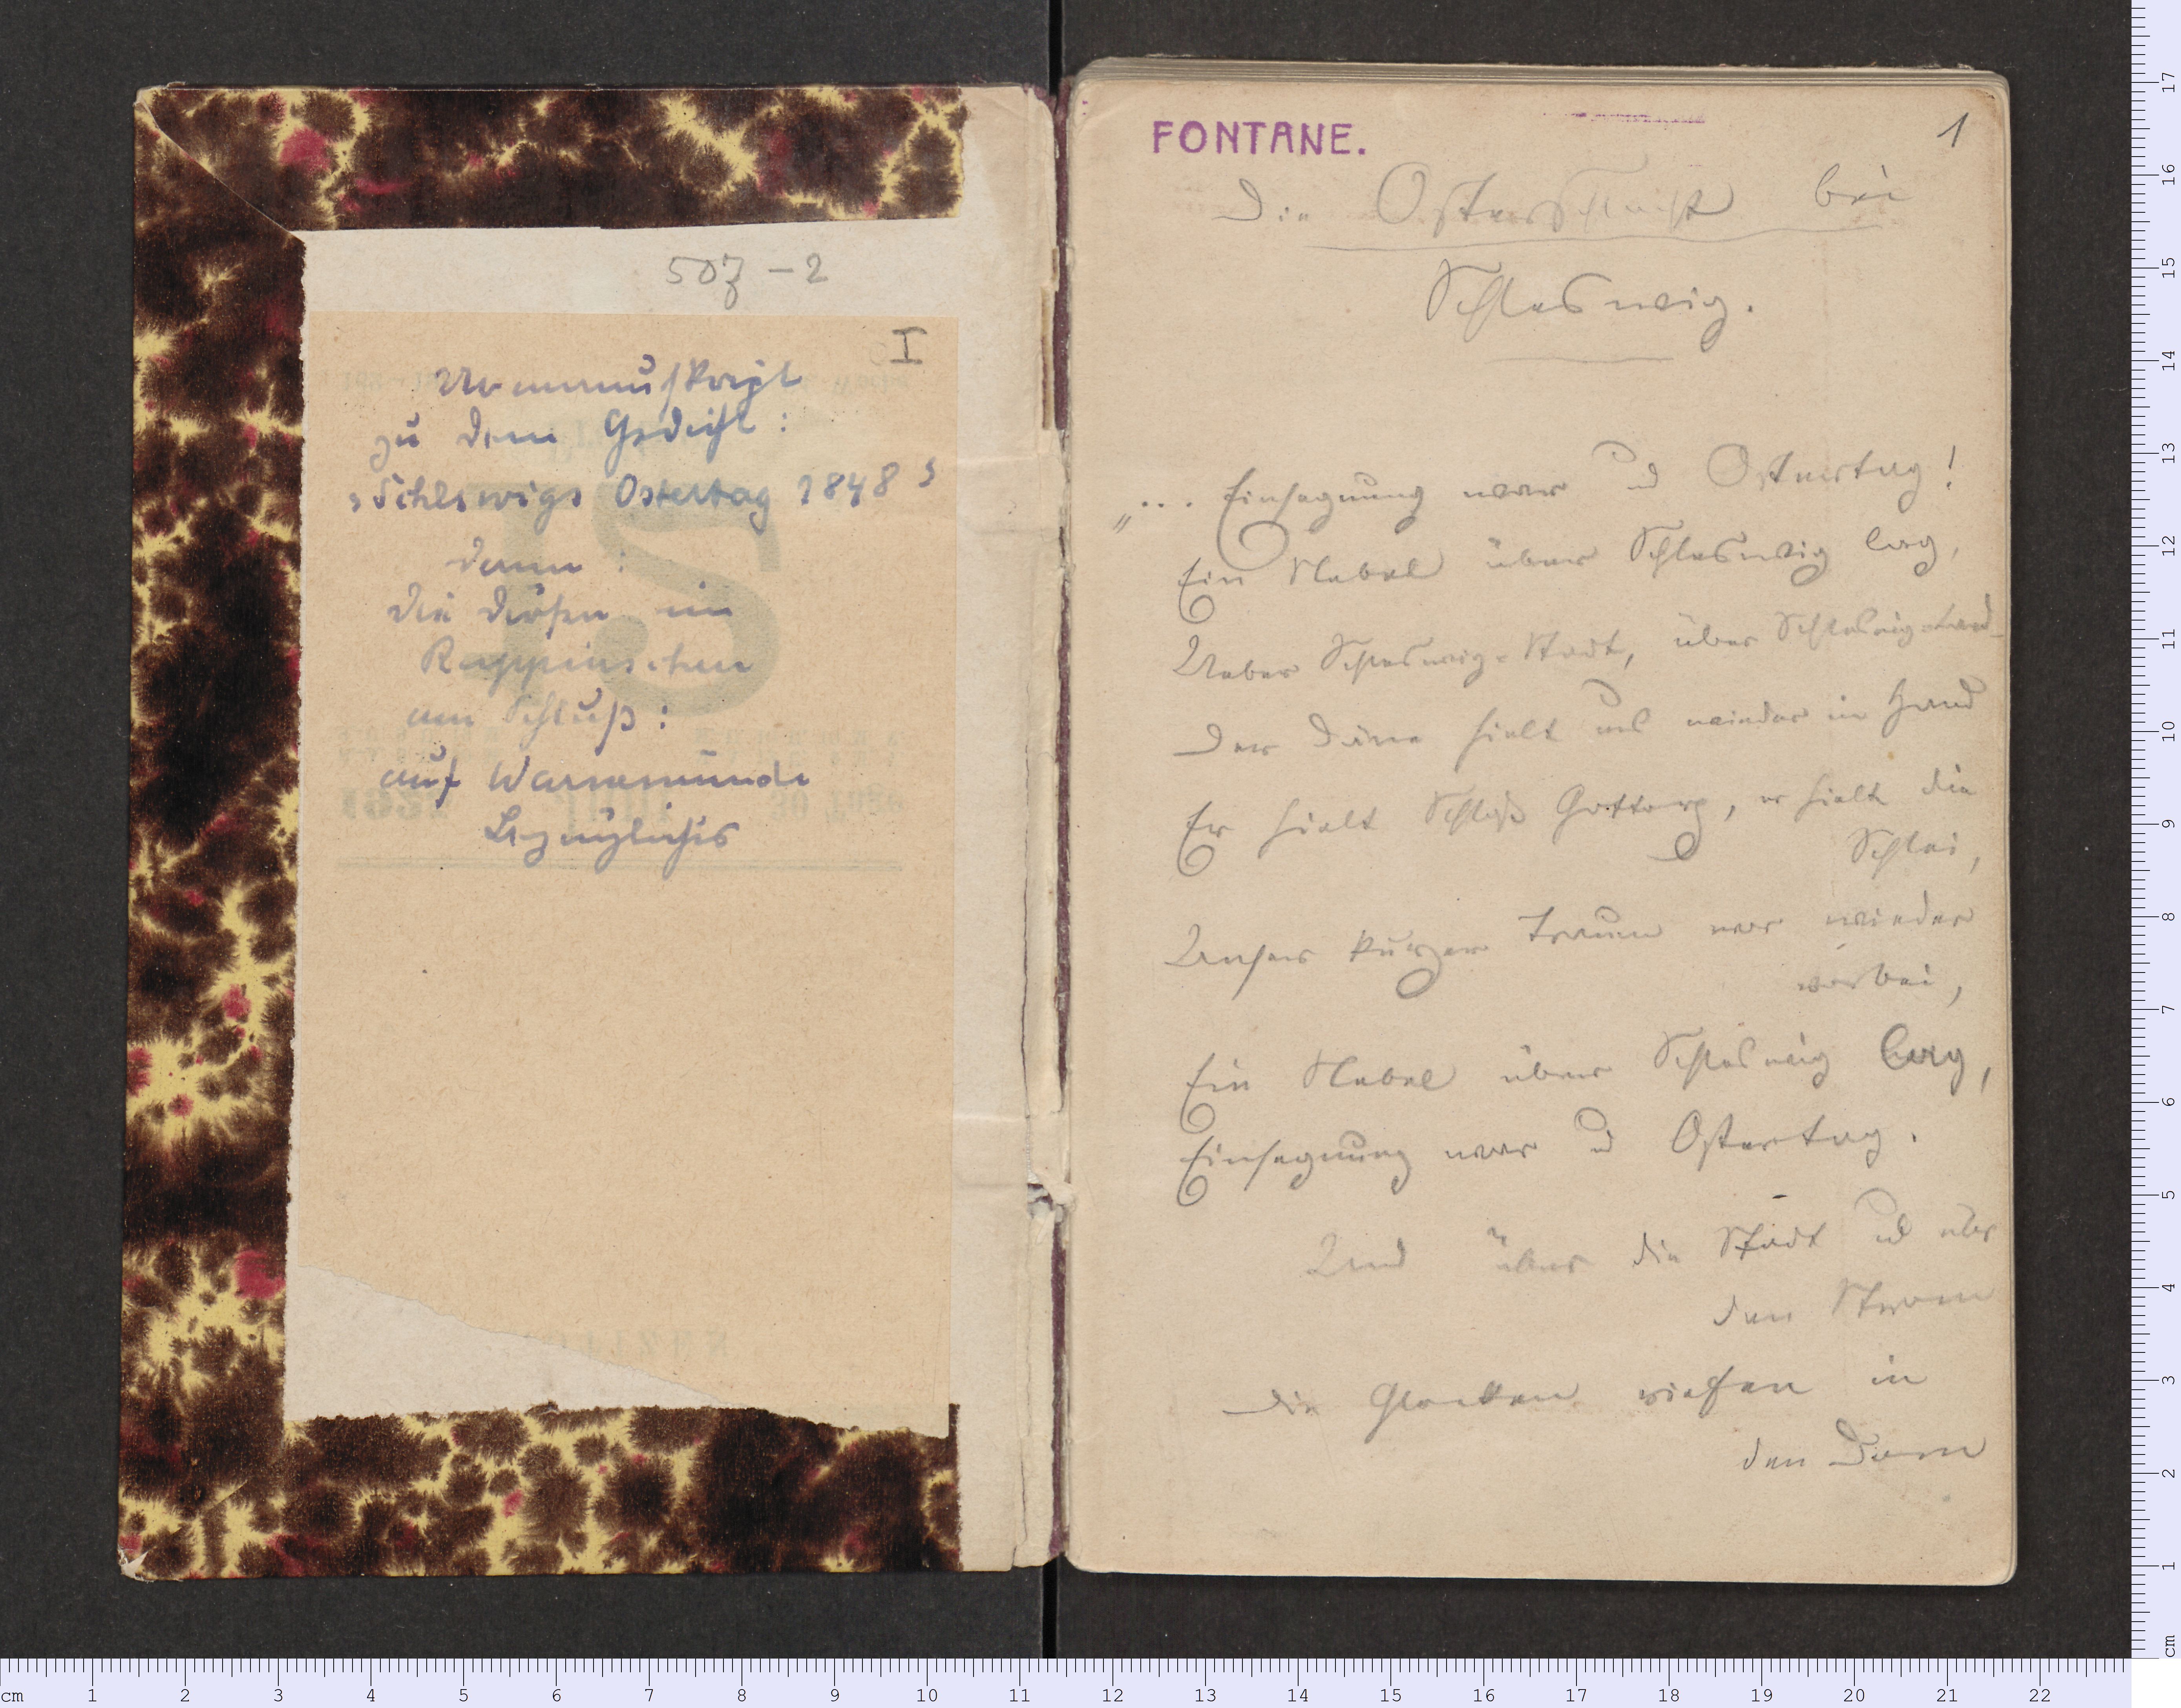 507-2
I
Urmanuskript
zu dem Gedicht:
„Schleswigs Ostertag 1848“
dann:
Die Dörfer im
Ruppinschen
am Schluß:
auf Warnemünde
Bezügliches
FONTANE.
1
Die Osterschlacht bei
Schleswig.
„... Einsegnung war u Ostertag!
Ein Nebel über Schleswig lag,
Ueber Schleswig-Stadt, über Schleswig-Land
Der Däne hielt uns wieder in Hand
Er hielt Schloß Gottorp, er hielt die
Schlei,
Unser kurzer Traum war wieder
vorbei,
Ein Nebel über Schleswig lag,
Einsegnung war u Ostertag.
Und über die Stadt u über
den Strom
Die Glocken riefen in
den Dom